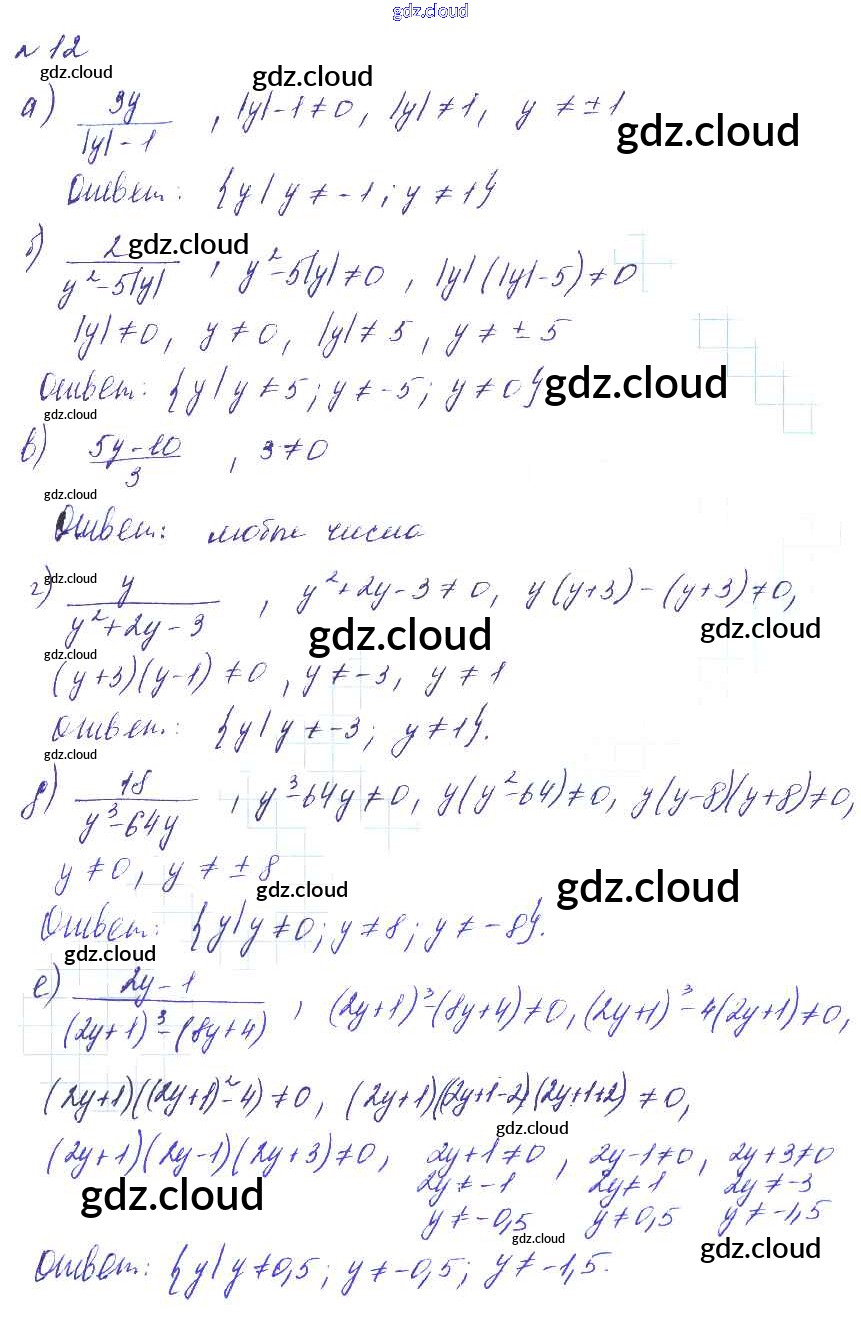 gdz.cloud
№ 12
gdz.cloud
gdz.cloud
а) 3y / |y| - 1 , |y| - 1 ≠ 0, |y| ≠ 1, y ≠ ± 1
gdz.cloud
Ответ: {y | y ≠ -1; y ≠ 1}
gdz.cloud
б) 2 / y² - 5|y| , y² - 5|y| ≠ 0, |y|(|y| - 5) ≠ 0
|y| ≠ 0, y ≠ 0, |y| ≠ 5, y ≠ ± 5
Ответ: {y | y ≠ 5; y ≠ -5; y ≠ 0}
gdz.cloud
gdz.cloud
в) 5y - 10 / 3 , 3 ≠ 0
gdz.cloud
Ответ: любые числа
gdz.cloud
г) y / y² + 2y - 3 , y² + 2y - 3 ≠ 0, y(y+3) - (y+3) ≠ 0,
gdz.cloud
gdz.cloud
gdz.cloud
(y+3)(y-1) ≠ 0, y ≠ -3, y ≠ 1
Ответ: {y | y ≠ -3; y ≠ 1}.
gdz.cloud
д) 18 / y³ - 64y , y³ - 64y ≠ 0, y(y² - 64) ≠ 0, y(y-8)(y+8) ≠ 0,
y ≠ 0, y ≠ ± 8
gdz.cloud
gdz.cloud
Ответ: {y | y ≠ 0; y ≠ 8; y ≠ -8}.
gdz.cloud
е) 2y - 1 / (2y+1)³ - (8y+4) , (2y+1)³ - (8y+4) ≠ 0, (2y+1)³ - 4(2y+1) ≠ 0,
(2y+1)((2y+1)² - 4) ≠ 0, (2y+1)(2y+1-2)(2y+1+2) ≠ 0,
gdz.cloud
(2y+1)(2y-1)(2y+3) ≠ 0, 2y+1 ≠ 0, 2y-1 ≠ 0, 2y+3 ≠ 0
2y ≠ -1 2y ≠ 1 2y ≠ -3
gdz.cloud
y ≠ -0,5 y ≠ 0,5 y ≠ -1,5
gdz.cloud
gdz.cloud
Ответ: {y | y ≠ 0,5; y ≠ -0,5; y ≠ -1,5.